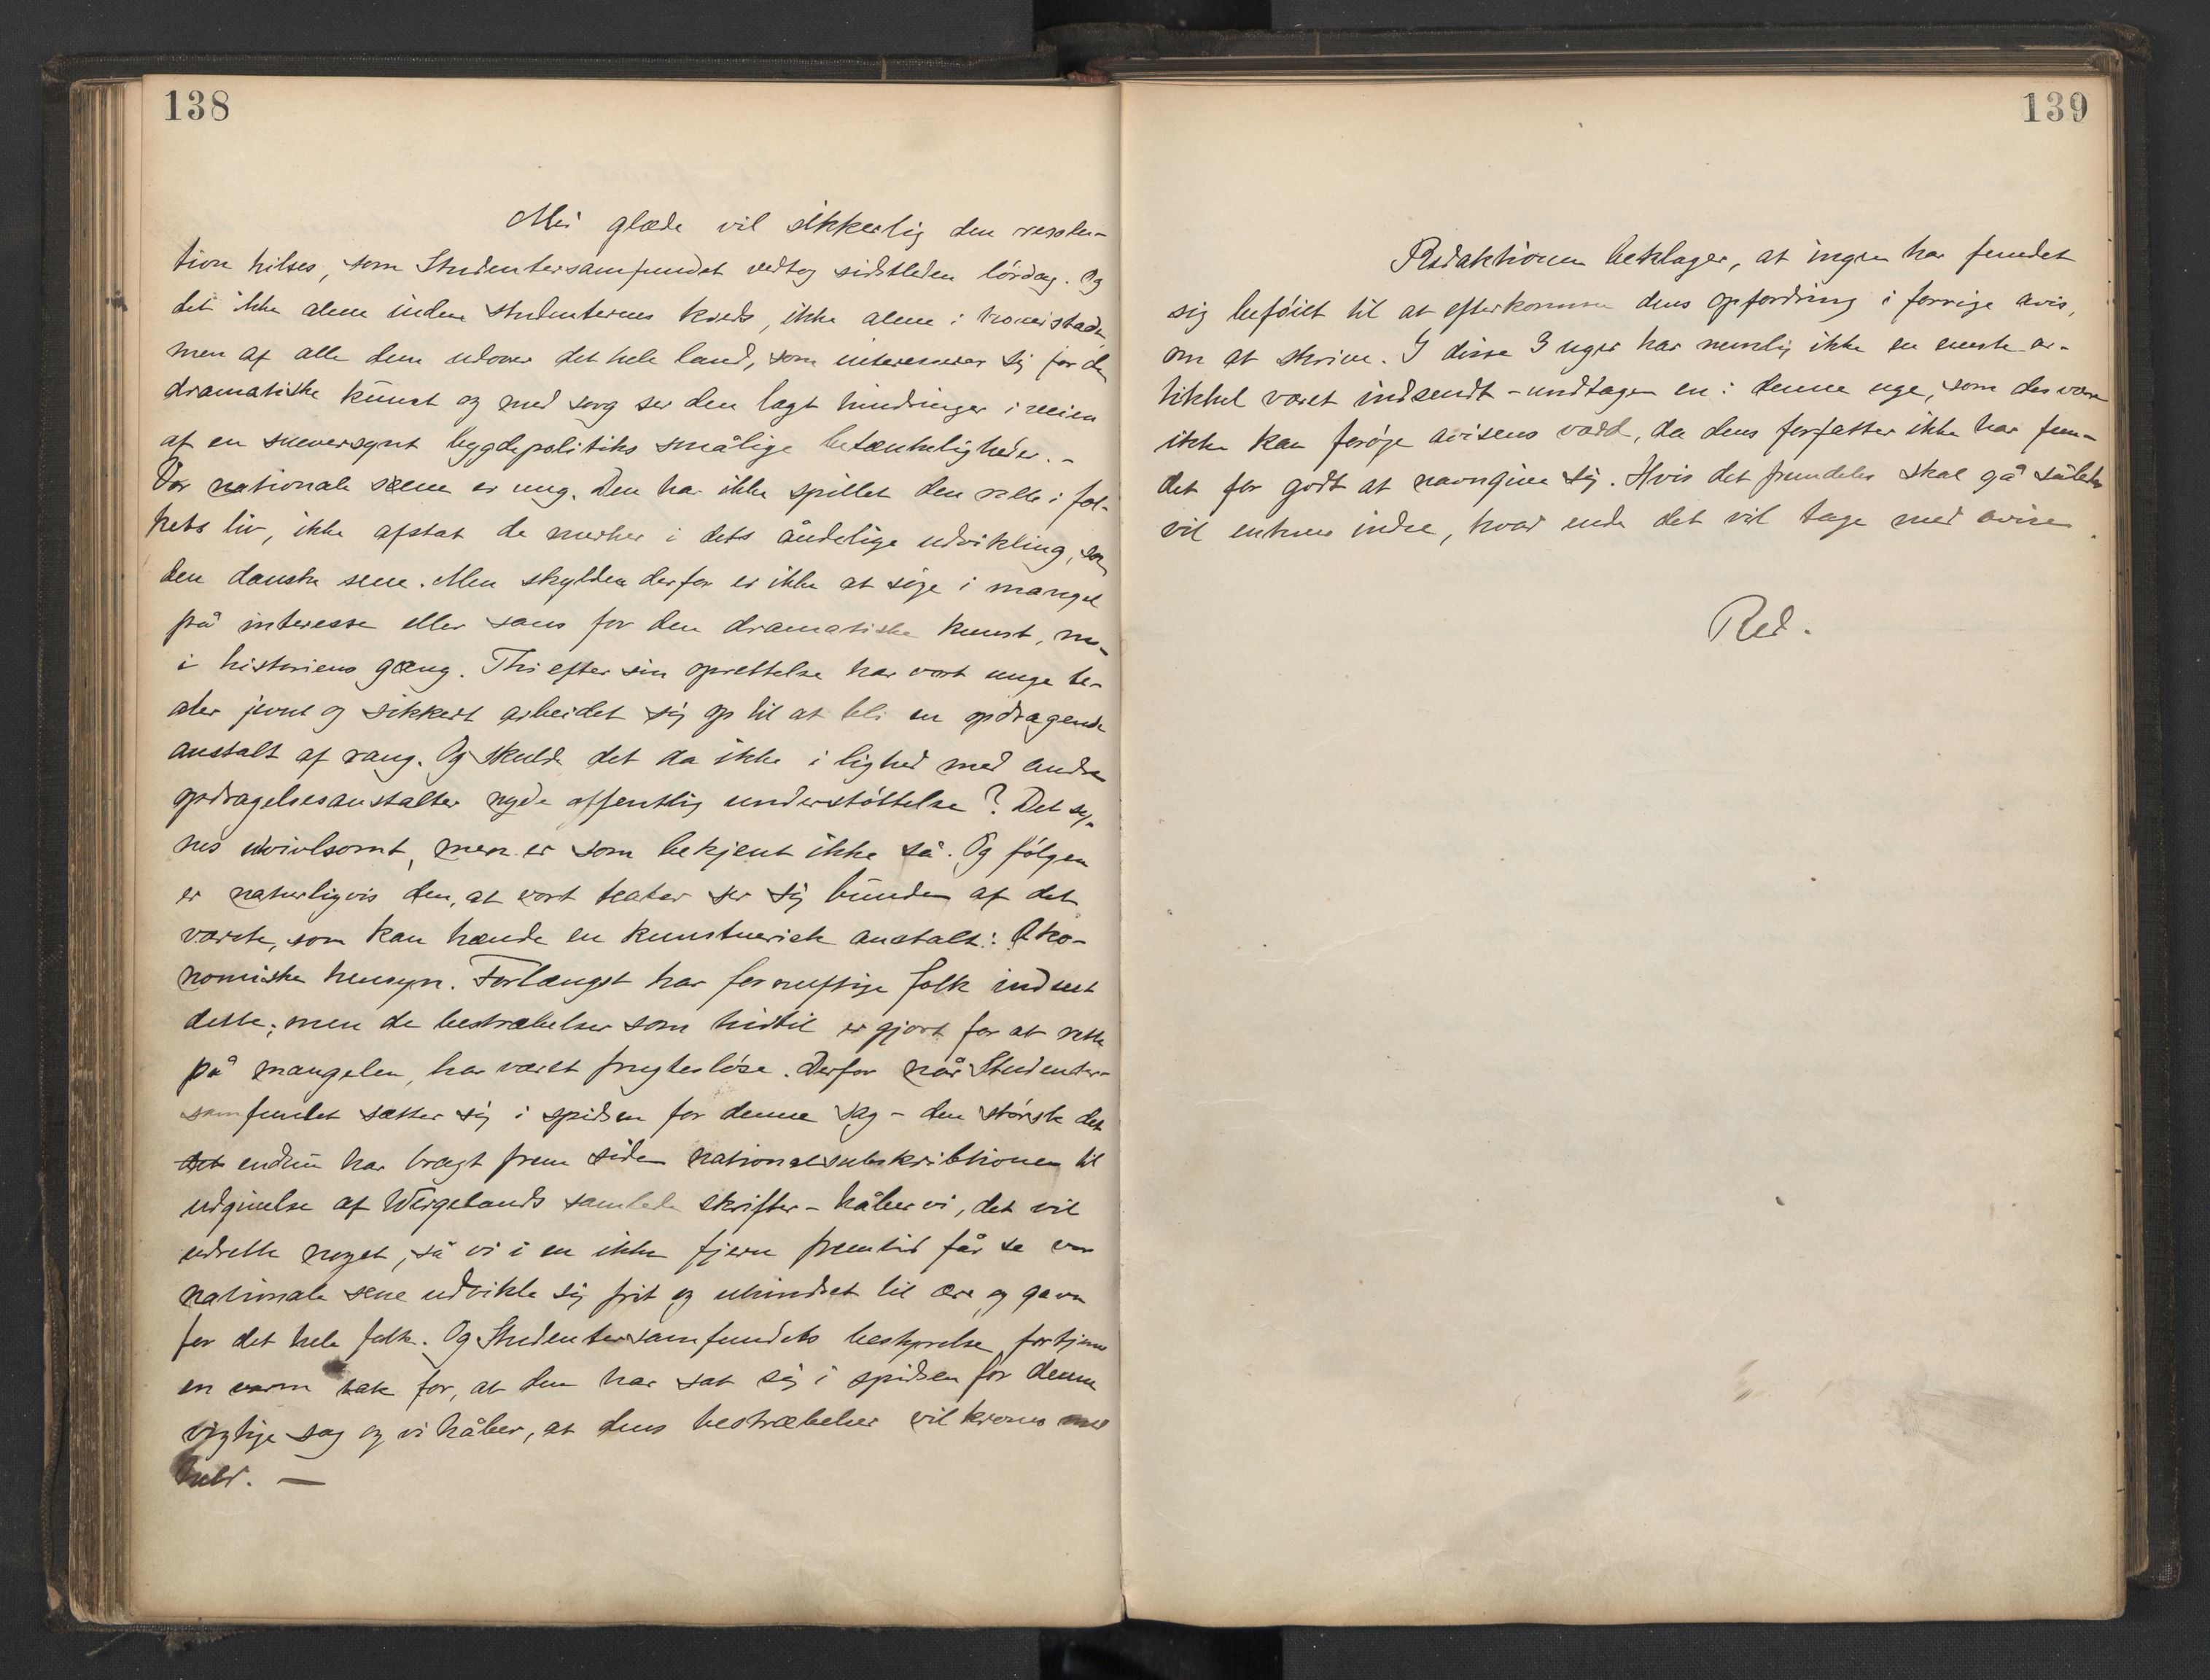 138
Med glæde vil sikkerlig den resolu-
tion hilses, som Studentersamfundet vedtog sidstleden lördag. Og
det ikke alene inden studenternes kreds, ikke alene i hovedstaden,
men af alle dem udover det hele land, som interesserer sig for den
dramatiske kunst og med sorg ser den lagt hindringer i veien
af en sneversynt bygdepolitiks smålige betænkeligheder. –
Vor nationale scene er ung. Den har ikke spillet den rolle i fol-
kets liv, ikke afsat de merker i dets åndelige udvikling, som
den danske scene. Men skylden derfor er ikke at söge i mangel
på interesse eller sans for den dramatiske kunst, men
i historiens gang. Thi efter sin oprettelse har vort unge te-
ater jevnt og sikkert arbeidet sig op til at bli en opdragende
anstalt af rang. Og skulde det da ikke i lighed med andre
opdragelsesanstalter nyde offentlig understöttelse? Det sy-
nes utvivlsomt, men er som bekjent ikke så. Og fölgen
er naturligvis den, at vort teater ser sig bunden af det
værste, som kan hænde en kunstnerisk anstalt: Öko-
nomiske hensyn. Forlængst har fornuftige folk indseet
dette; men de bestræbelser som hidtil er gjort for at rette
på mangelen, har været frugteslöse. Derfor når Studenter-
samfundet sætter sig i spidsen for denne sag – den störste det
endnu har bragt frem siden nationalsubskribtionen til
udgivelse af Wergelands samlede skrifter – håber vi, det vil
udrette noget, så vi i en ikke fjern fremtid får se vor
nationale scene udvikle sig frit og uhindret til ære og gavn
for det hele folk. Og Studentersamfundets bestyrelse fortjener
en varm tak for, at den har sat sig i spidsen for denne
vigtige sag og vi håber, at dens bestræbelser vil krones med
held. —
139
Redaktionen beklager, at ingen har fundet
sig beföiet til at efterkomme dens opfordring i forrige avis,
om at skrive. I disse 3 uger har nemlig ikke en eneste ar-
tikkel været indsendt – undtagen en i denne uge, som desværre
ikke kan foröge avisens værd, da dens forfatter ikke har fun-
det for godt at navngive sig. Hvis det fremdeles skal gå således
vil enhver indse, hvad ende det vil tage med avisen.
Red.